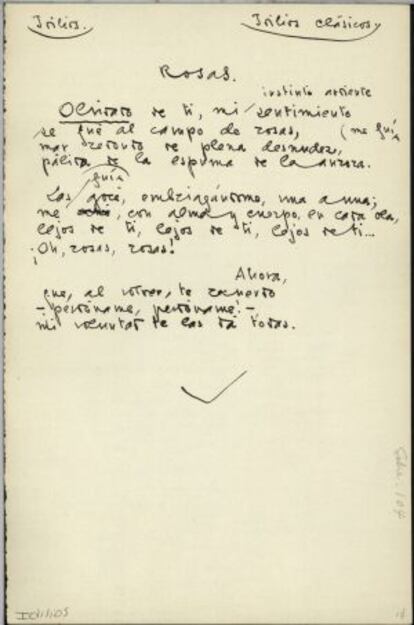 Idilios. Idilios clásicos
Rosas.
instinto ardiente
Olvidado de ti, mi sentimiento
se fué al campo de rosas, (me fuí
mar redondo de plena desnudez,
pálida de la espuma de la aurora.
Las gocé, embriagándome, una a una;
me, con alma y cuerpo, en cada ola,
lejos de ti, lejos de ti, lejos de ti...
¡Oh, rosas, rosas!
Ahora,
que, al volver, te recuerdo
—perdóname, perdóname!—
mi voluntad te las da todas.
IDILIOS